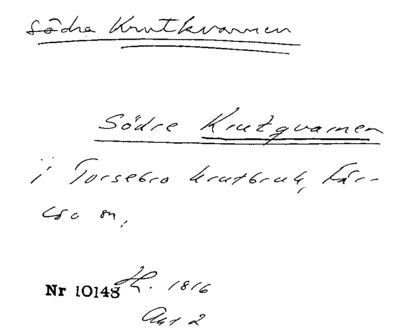 Södra Krutkvarnen
Södre Krutqvarnen
i Torsebro krutbruk, Fär-
löv sn,
Nr 10148 Hl. 1816
Akt 2